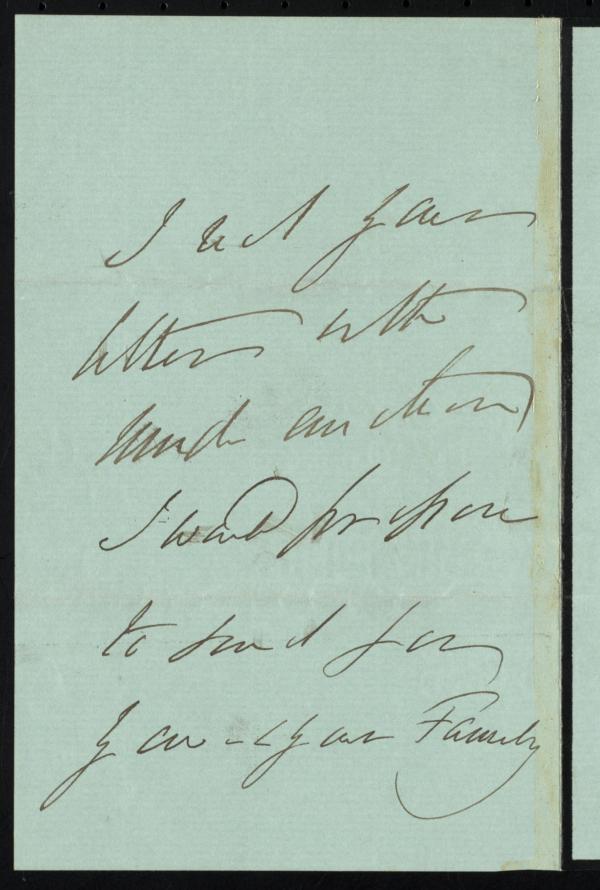 I read your
letters with
much emotion
I would propose
to send for
you & your Family